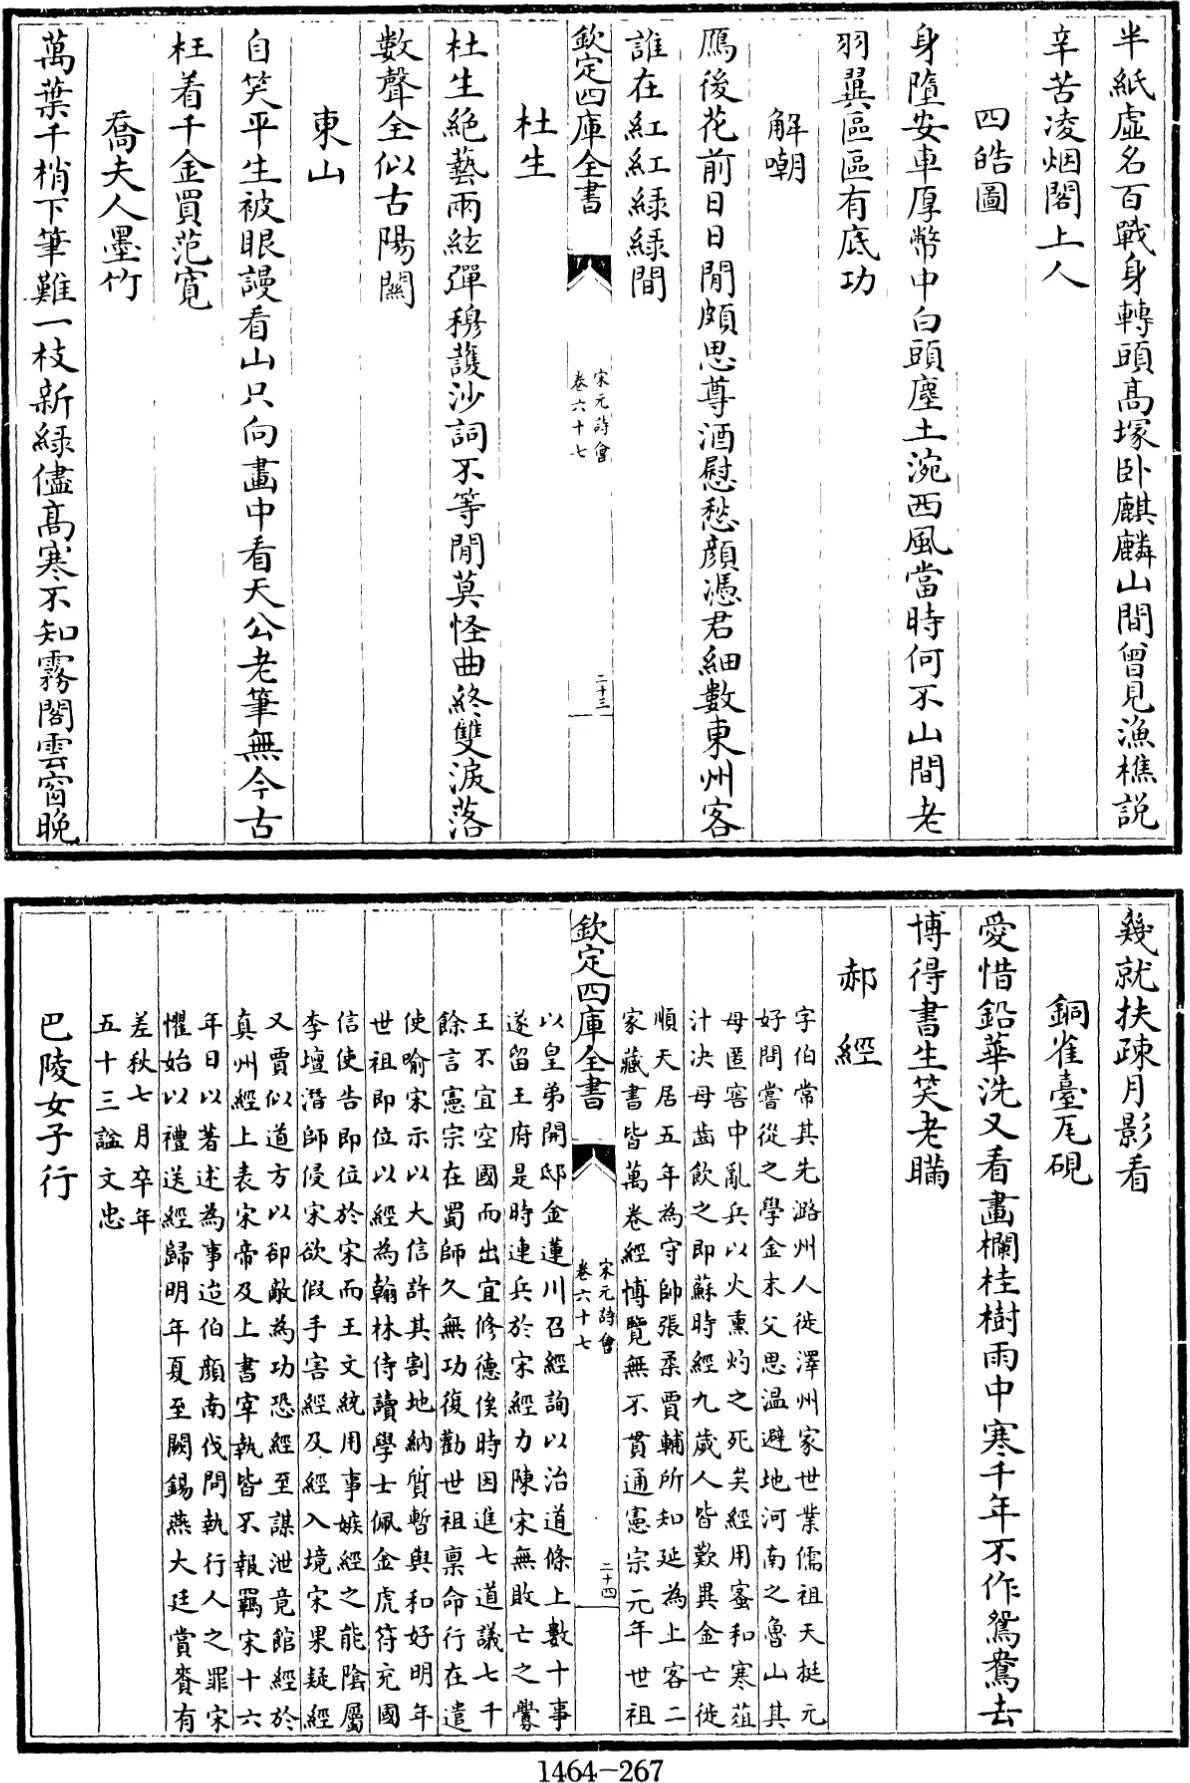 半紙虛名百戰身轉頭髙塚卧麒麟山間曾見漁樵説
辛苦凌烟閣上人
四皓圖
身墮安車厚幣中白頭塵土涴西風當時何不山間老
羽翼區區有底功
解嘲
鴈後花前日日閒頗思尊酒慰愁顔憑君細數東州客
誰在紅紅緑緑間
欽定四庫全書
宋元詩會
卷六十七
二十三
杜生
杜生絶藝兩絃彈穆護沙詞不等閒莫怪曲終雙淚落
數聲全似古陽闗
東山
自笑平生被眼謾看山只向畫中看天公老筆無今古
枉着千金買范寛
喬夫人墨竹
萬葉千梢下筆難一枝新緑儘髙寒不知霧閣雲窗晚
幾就扶疎月影看
銅雀臺瓦硯
愛惜鉛華洗又看畫欄桂樹雨中寒千年不作鴛鴦去
博得書生笑老瞞
郝經
字伯常其先潞州人徙澤州家世業儒祖天挺元
好問嘗從之學金末父思温避地河南之魯山其
母匿窖中亂兵以火熏灼之死矣經用蜜和寒葅
汁决母齒飲之即蘇時經九歲人皆歎異金亡徙
順天居五年為守帥張柔賈輔所知延為上客二
家藏書皆萬卷經博覽無不貫通憲宗元年世祖
欽定四庫全書
宋元詩會
卷六十七
二十四
以皇弟開邸金蓮川召經詢以治道條上數十事
遂留王府是時連兵於宋經力陳宋無敗亡之釁
王不宜空國而出宜修德俟時因進七道議七千
餘言憲宗在蜀師久無功復勸世祖禀命行在遣
使喻宋示以大信許其割地納質暫與和好明年
世祖即位以經為翰林侍讀學士佩金虎符充國
信使告即位於宋而王文統用事嫉經之能隂屬
李壇潛師侵宋欲假手害經及經入境宋果疑經
又賈似道方以卻敵為功恐經至謀泄竟館經於
真州經上表宋帝及上書宰執皆不報羈宋十六
年日以著述為事迨伯顔南伐問執行人之罪宋
懼始以禮送經歸明年夏至闕錫燕大廷賞賚有
差秋七月卒年
五十三諡文忠
巴陵女子行
1464-267